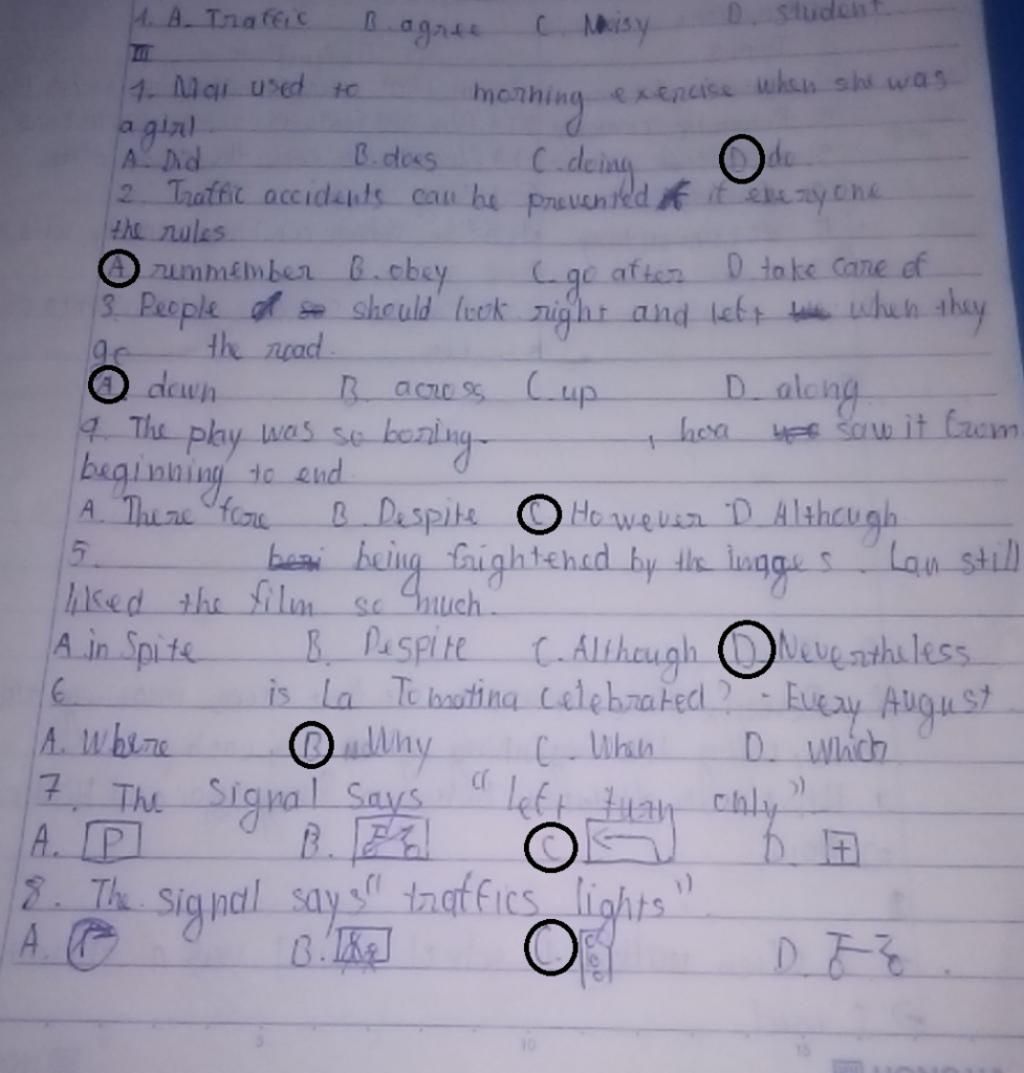 1. A. Traffic B. agree C. Noisy D. student
III
1. Mai used to morning exercise when she was
a girl
A. Did B. does C. doing D. do
2. Traffic accidents can be prevented if everyone
the rules
A. rummember B. obey C. go after D. take care of
3. People should look right and left when they
go the road.
A. down B. across C. up D. along
4. The play was so boring. , hoa saw it from
beginning to end.
A. There fore B. Despite C. However D. Although
5. being frightened by the images. Lan still
liked the film so much.
A. in Spite B. Despite C. Although D. Nevertheless
6 is La Tomatina celebrated? - Every August
A. Where B. Why C. When D. Which
7. The signal says "left turn only"
A. P B. C D. +
8. The signal says "traffics lights"
A. B. C. D.
5 10 15